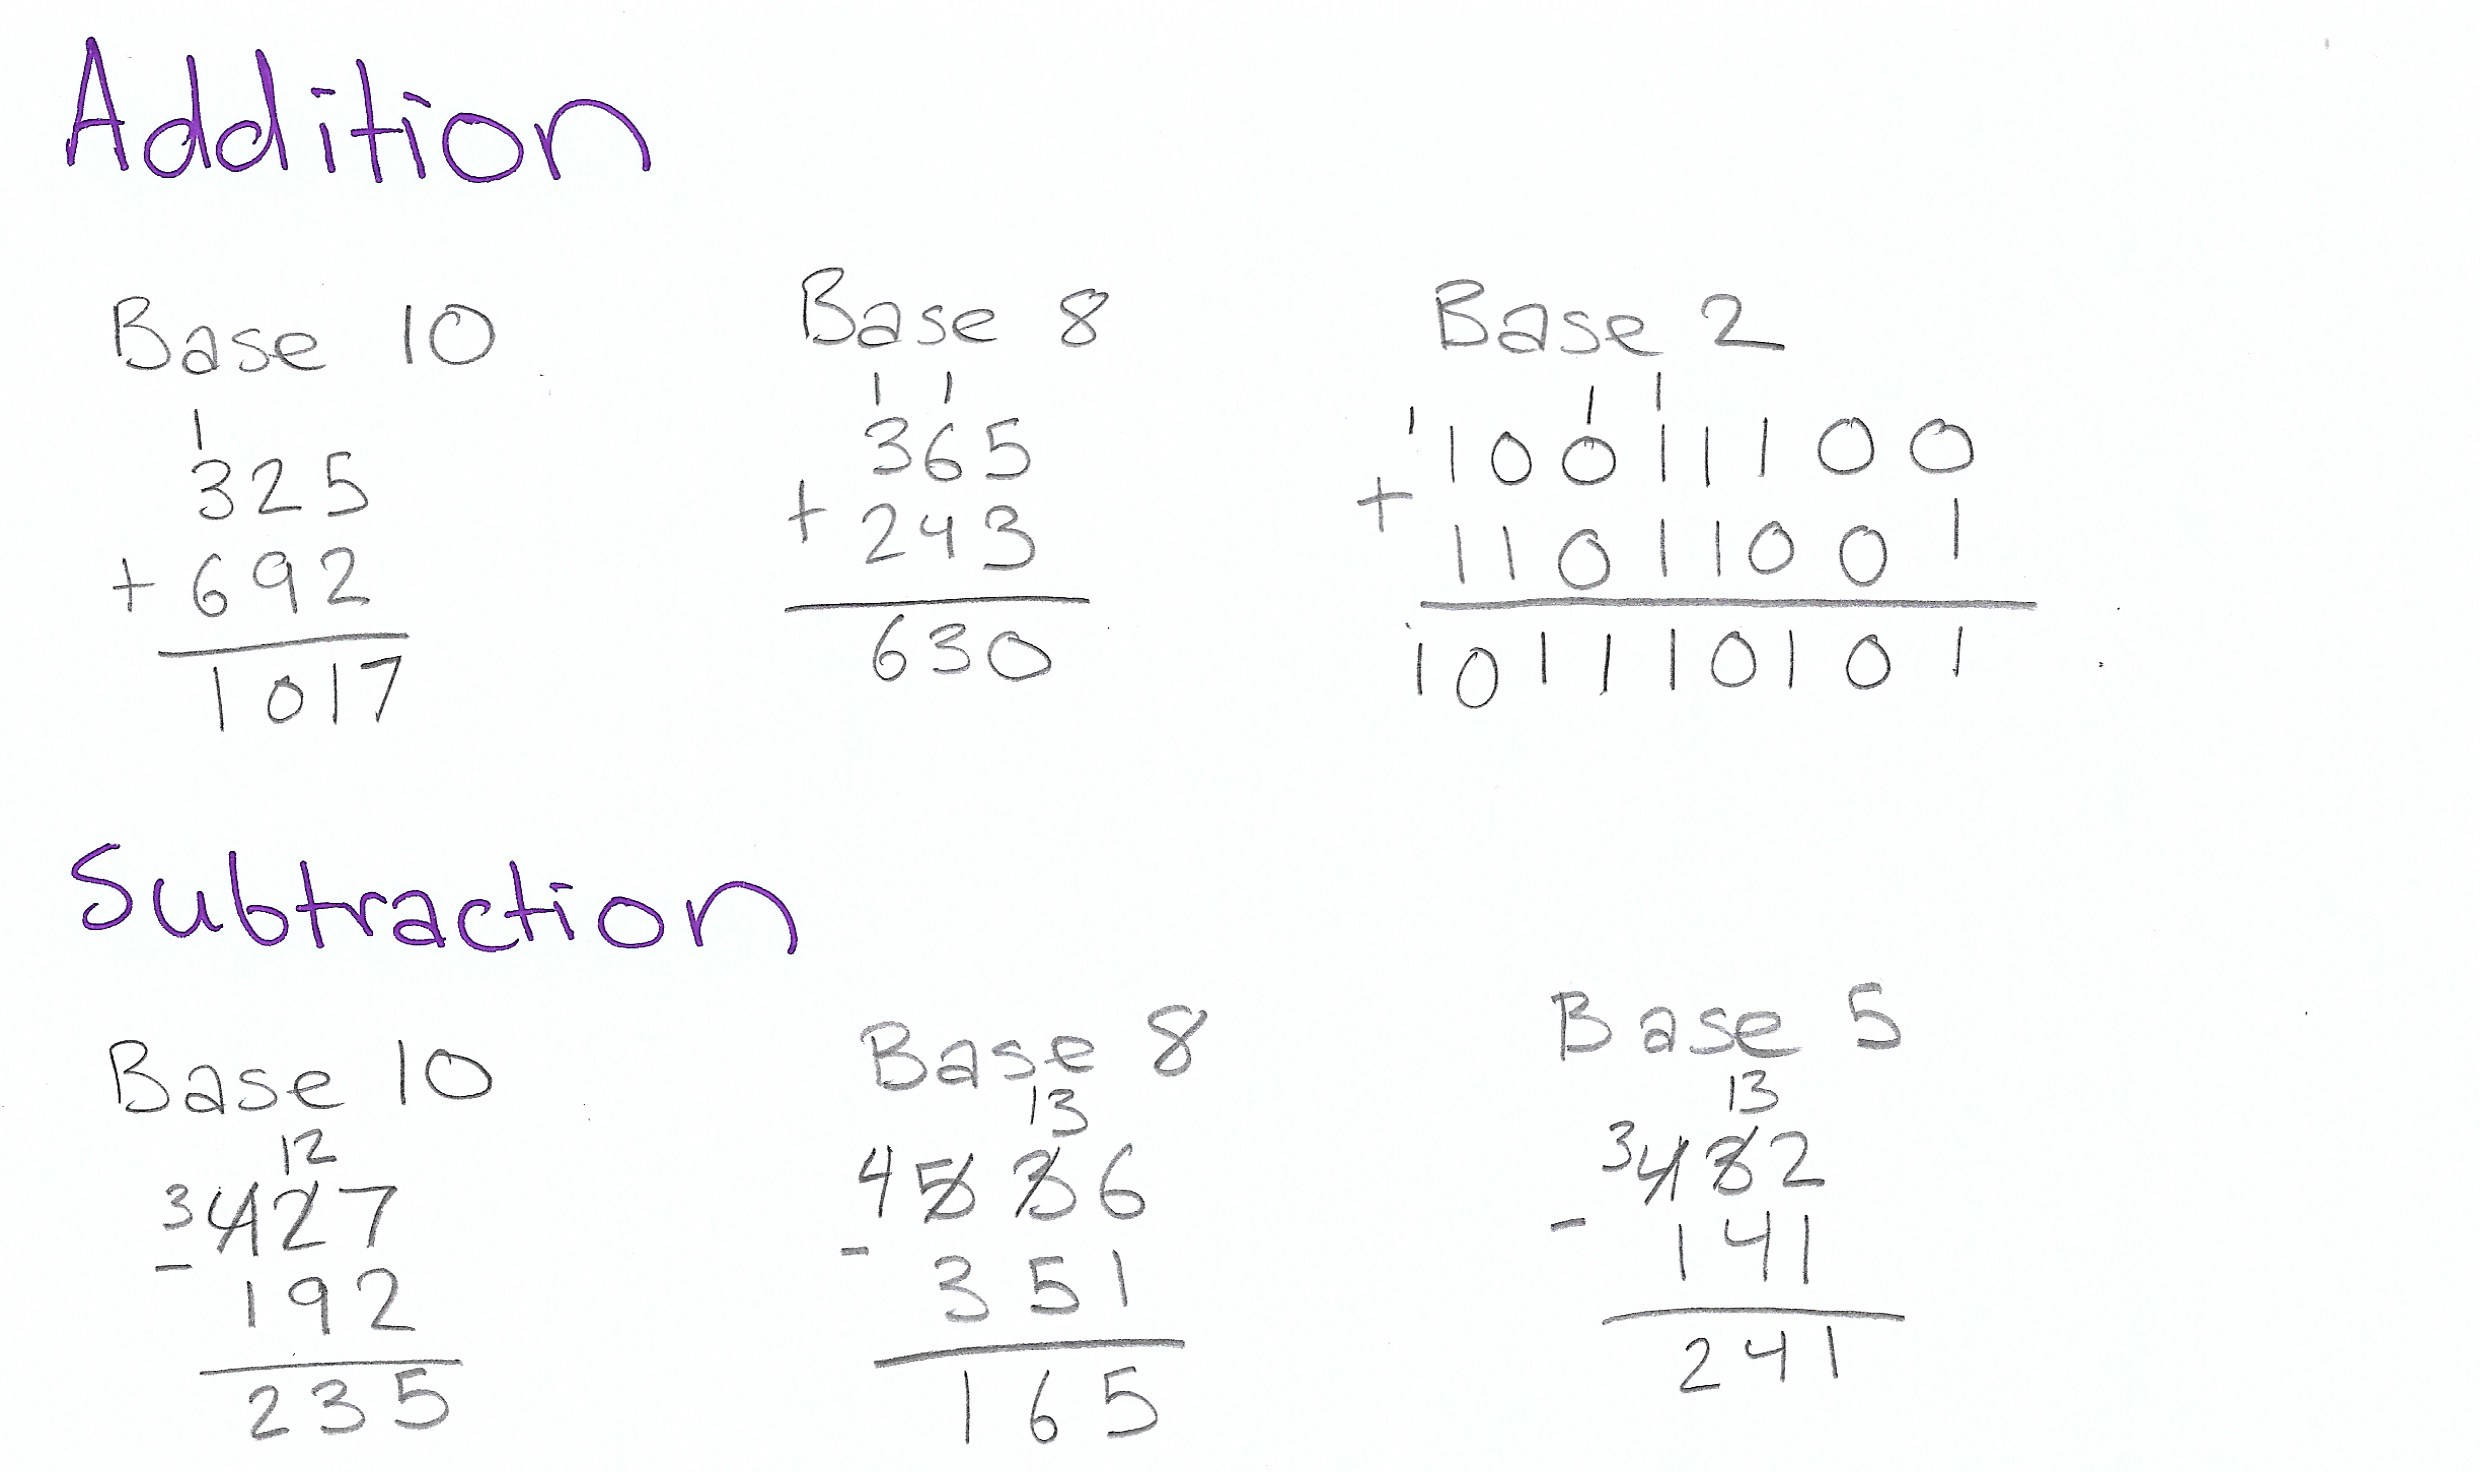 Addition
Base 10
1
325
+ 692
1017
Base 8
1 1
365
+ 243
630
Base 2
1 1 1
10011100
+
11011001
101110101
Subtraction
Base 10
12
3 427
-
192
235
Base 8
13
4 536
-
351
165
Base 5
13
3 432
-
141
241